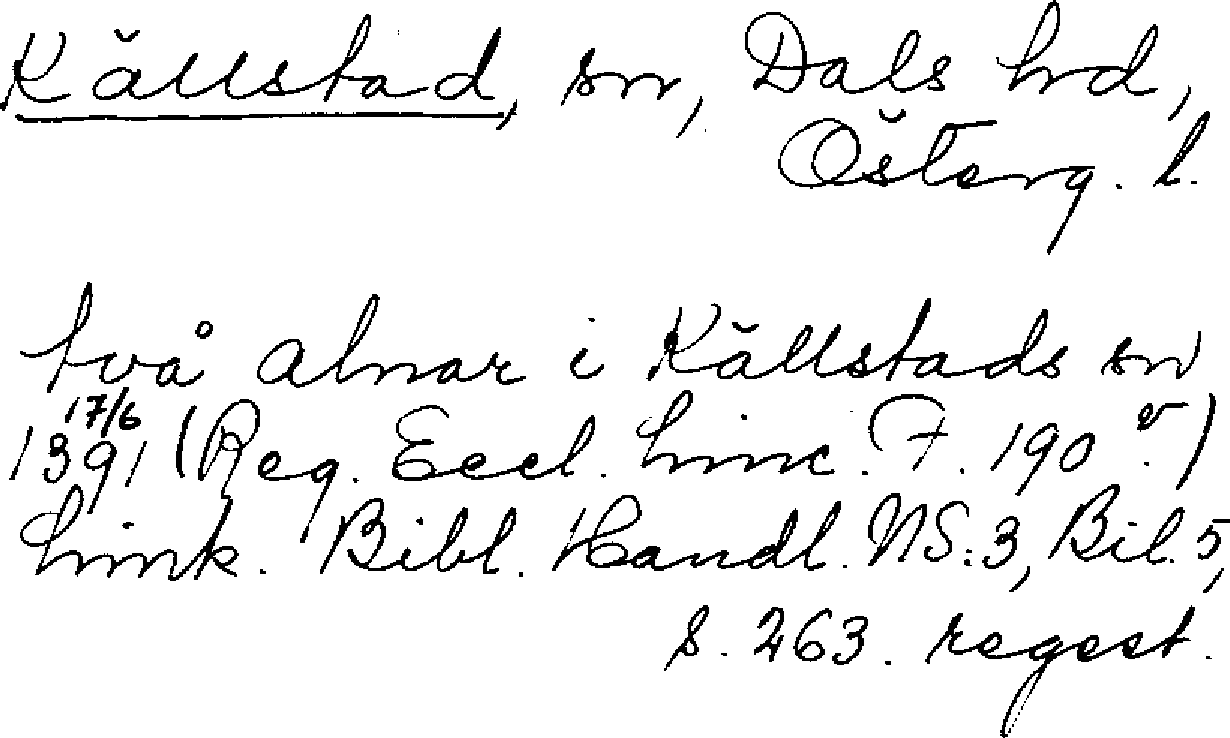 Källstad, sn, Dals hrd,
Österg. l.
två alnar i Källstads sn
17/6
1391 (Reg. Eccl. Linc. F. 190 v.)
Link. Bibl. Handl. NS:3, Bil. 5,
s. 263. regest.